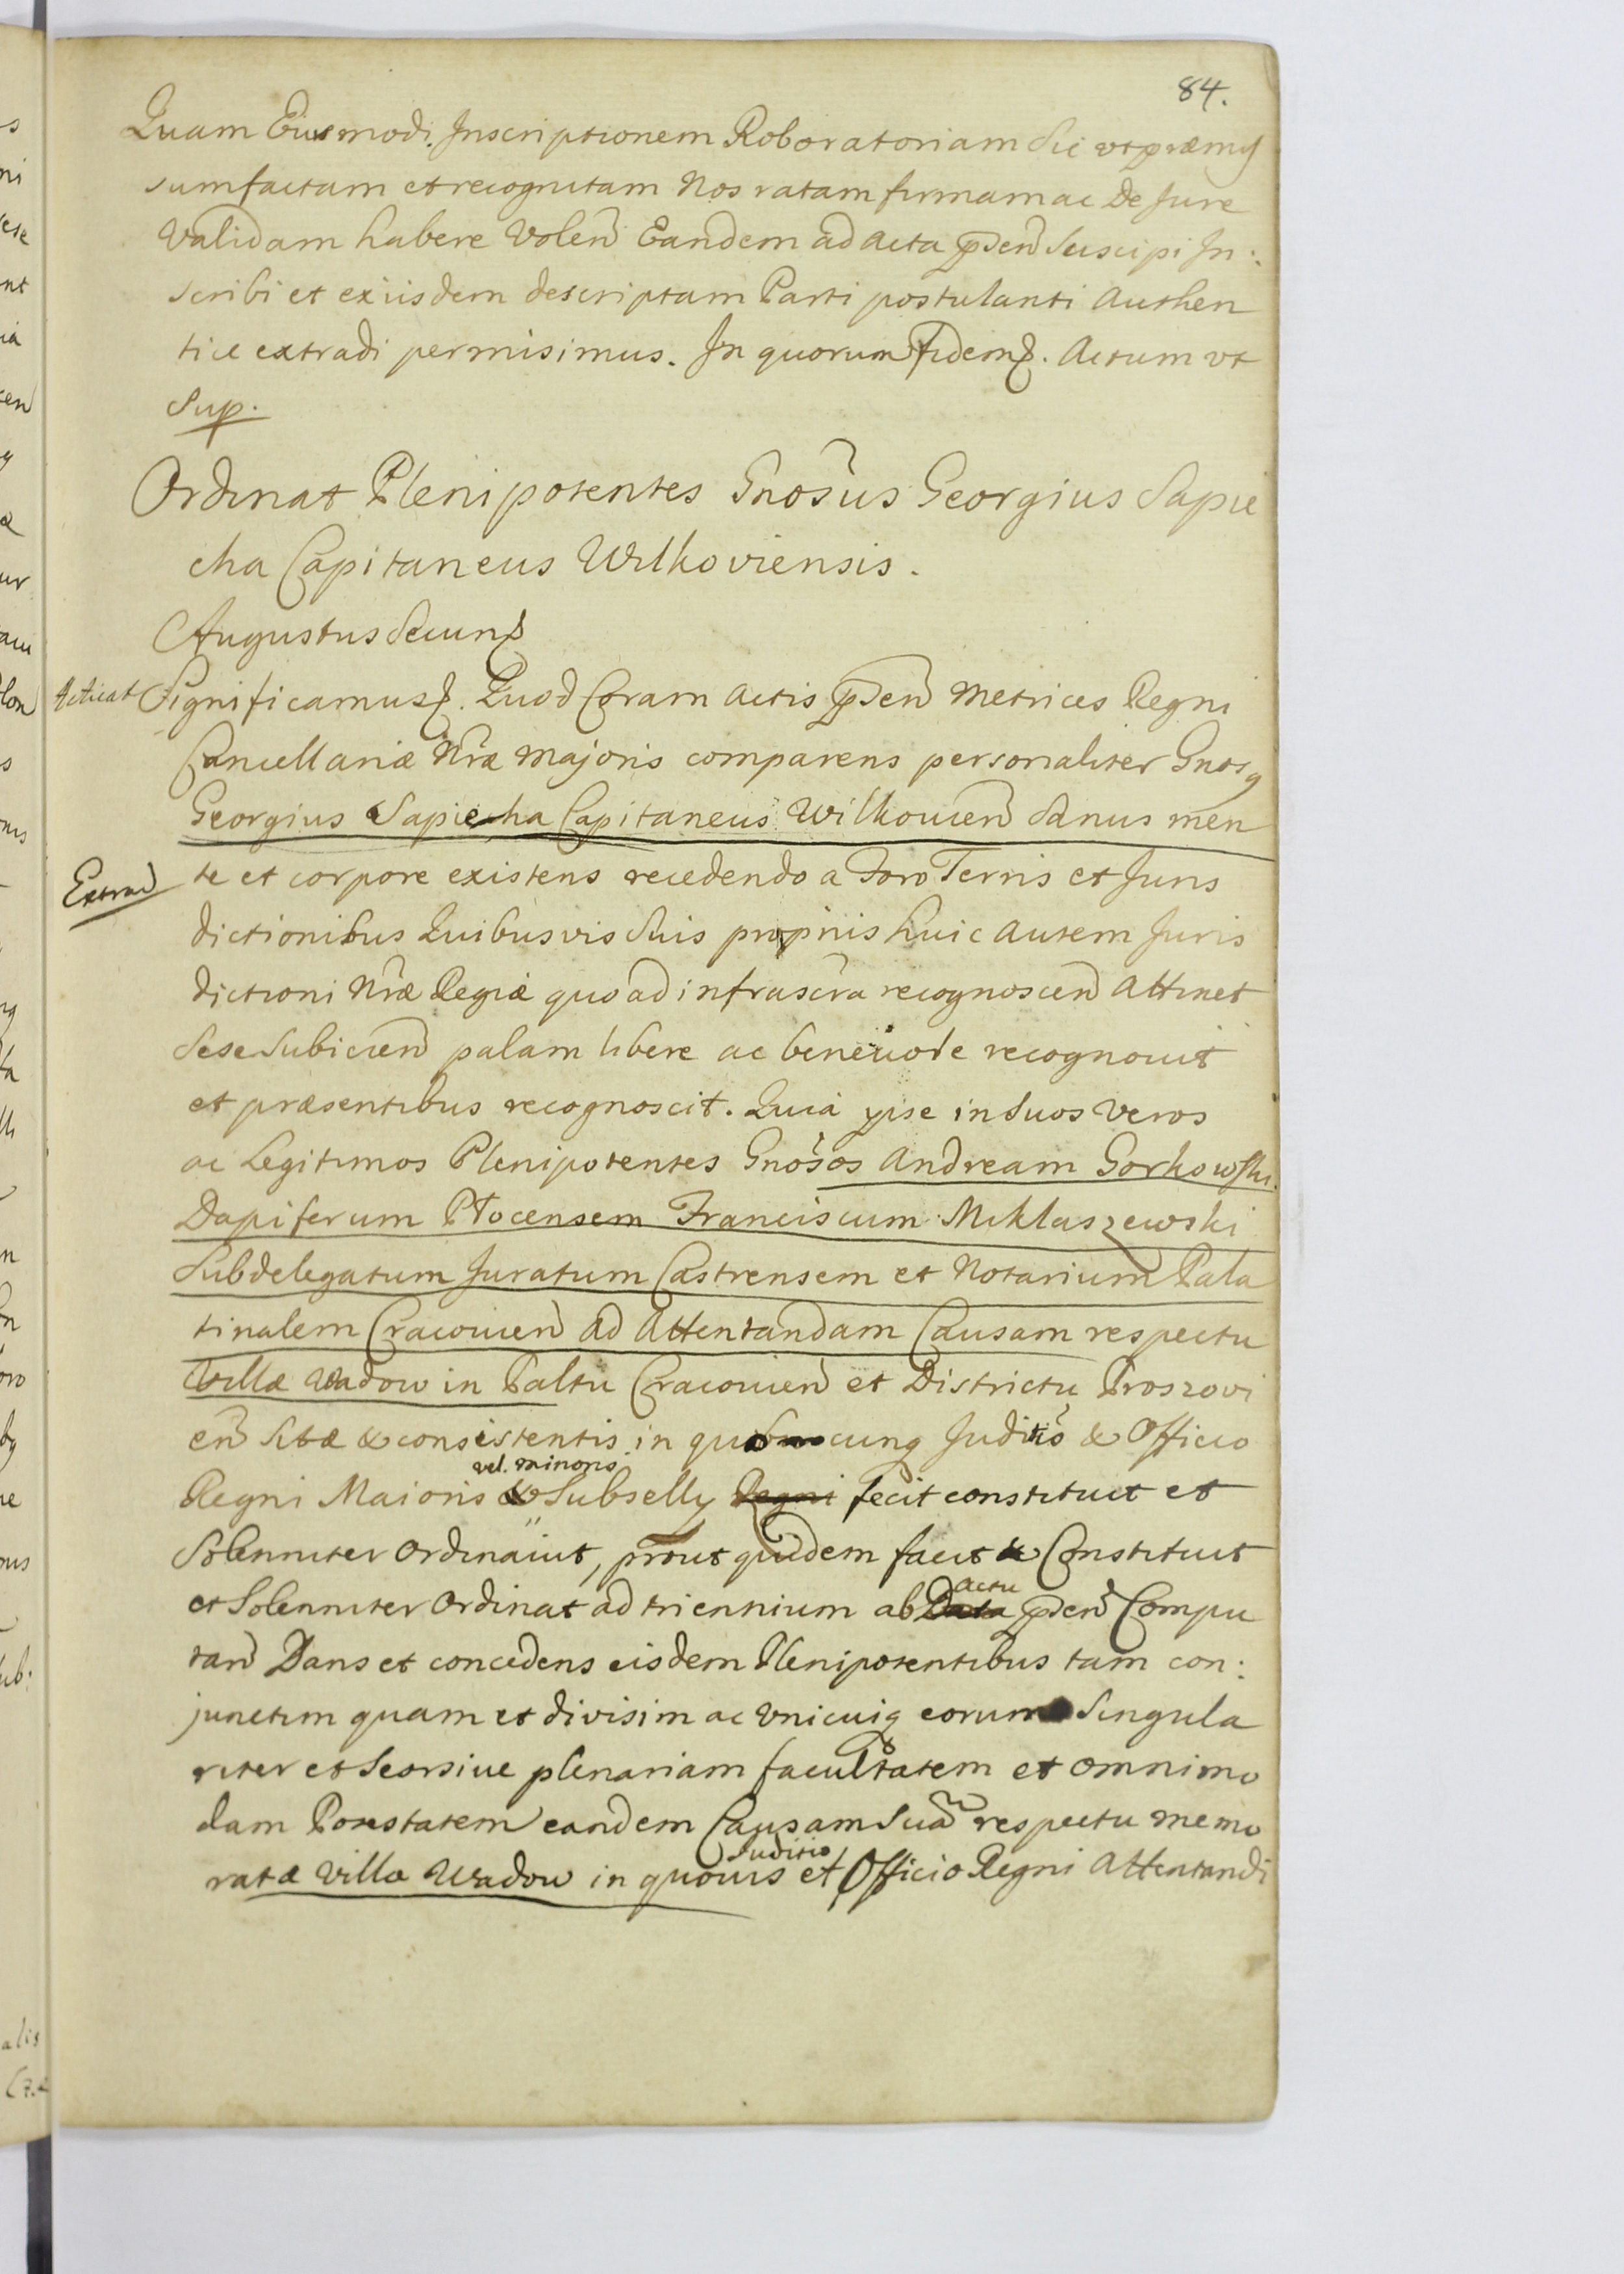 84.
Quam Eiusmodi Inscriptionem Roboratoriam Sic vt præmis
sum factam et recognitam Nos ratam firmam ac De Jure
Validam habere Volen̄ Eandem ad Acta p̄sen̄ Suscipi In:
scribi et ex iisdem descriptam Parti postulanti Authen
tice extradi permisimus. In quorum fidem. Actum vt
Sup.
Ordinat Plenipotentes Gn̄osus Georgius Sapie
cha Capitaneus Wilkoviensis.
Augustus Secun
Acticat Significamus. Quod Coram Actis p̄sen̄ Metrices Regni
Cancellariæ Nr̄æ Majoris comparens personaliter Gnosq
Georgius Sapiecha Capitaneus Wilkovien̄ Sanus men
Extrad te et corpore existens recedendo a Foro Terris et Juris
dictionibus Quibusvis Suis proprijs huic Autem Juris
dictioni Nr̄æ Regiæ quo ad infrascr̄a recognoscen̄ Attinet
Sese Subicien̄ palam libere ac benevole recognovit
et præsentibus recognoscit. Quia ipse in Suos Veros
ac Legitimos Plenipotentes Gnōsos Andream Gorkowski
Dapiferum Plocensem Franciscum Miklaszewski
Subdelegatum Juratum Castrensem et Notarium Pala
tinalem Cracovien̄ ad Attentandam Causam respectu
Villæ Wadow in Paltu Cracovien̄ et Districtu Proszovi
en̄ Sitæ & consistentis in quocunq Juditio & Officio
vel. minoris
Regni Maioris & Subselly Regni fecit constituit et
Solenniter Ordinavit, prout quidem facit & Constituit
actu
et Solenniter Ordinat ad triennium ab Data p̄sen̄ Compu
tan̄ Dans et concedens eisdem Plenipotentibus tam con:
junctim quam et divisim ac Vnicuiq eorum Singula
riter et Seorsive plenariam facultatem et omnimo
dam Potestatem eandem Causam Suā respectu memo
Juditio
ratæ Villæ Wadow in quovis et Officio Regni Attentandi